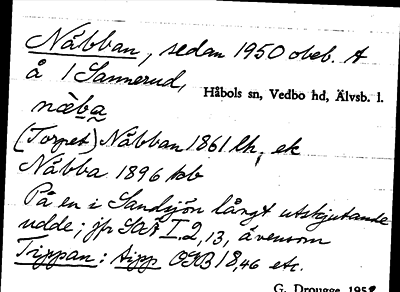 Nåbban, sedan 1950 obeb. A
å 1 Sannerud,
Håbols sn, Vedbo hd, Älvsb. l.
nä̀ba
(Torpet) Nåbban 1861 lh, ek
Nåbba 1896 kb
På en i Sandsjön långt utskjutande
udde; jfr SOÄ I. 2, 13, ävensom
Tippan: tipp OGB 18, 46 etc.
G. Drougge 1958